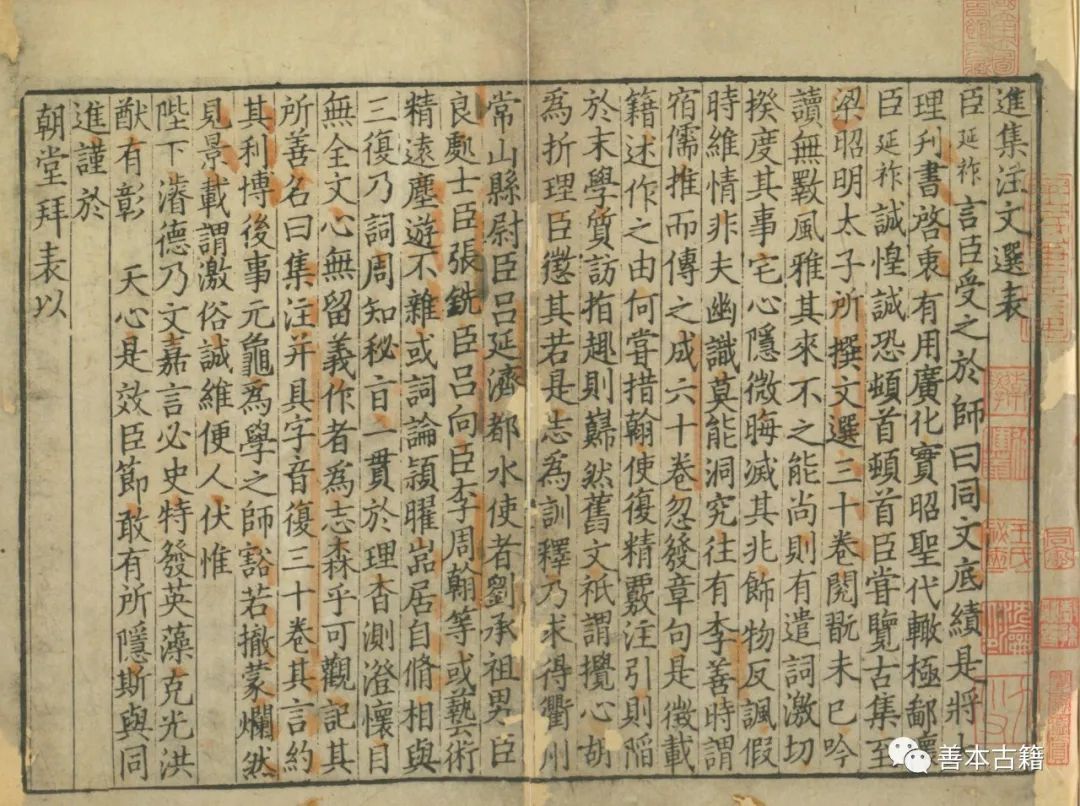 進集注文選表
臣延祚言臣受之於師曰同文底績是將
理刋書啓衷有用廣化實昭聖代輙極鄙懷
臣延祚誠惶誠恐頓首頓首臣甞覽古集至
梁昭明太子所撰文選三十卷閱翫未已吟
讀無斁風雅其來不之能尚則有遣詞激切
揆度其事宅心隱微晦滅其兆飾物反諷假
時維情非夫幽識莫能洞究往有李善時謂
宿儒推而傳之成六十卷忽發章句是徵載
籍述作之由何甞措翰使復精覈注引則陷
於末學質訪指趣則巋然舊文祇謂攪心胡
爲折理臣懲其若是志爲訓釋乃求得衢州
常山縣尉臣呂延濟都水使者劉承祖男臣
良處士臣張銑臣呂向臣李周翰等或藝術
精遠塵遊不雜或詞論潁曜嵓居自脩相與
三復乃詞周知秘旨一貫於理杳測澄懷目
無全文心無留義作者爲志森乎可觀記其
所善名曰集注并具字音復三十卷其言約
其利博後事元龜爲學之師豁若撤蒙爛然
見景載謂激俗誠維便人伏惟
陛下濬德乃文嘉言必史特發英藻克光洪
猷有彰 天心是效臣節敢有所隱斯與同
進謹於
朝堂拜表以
善本古籍